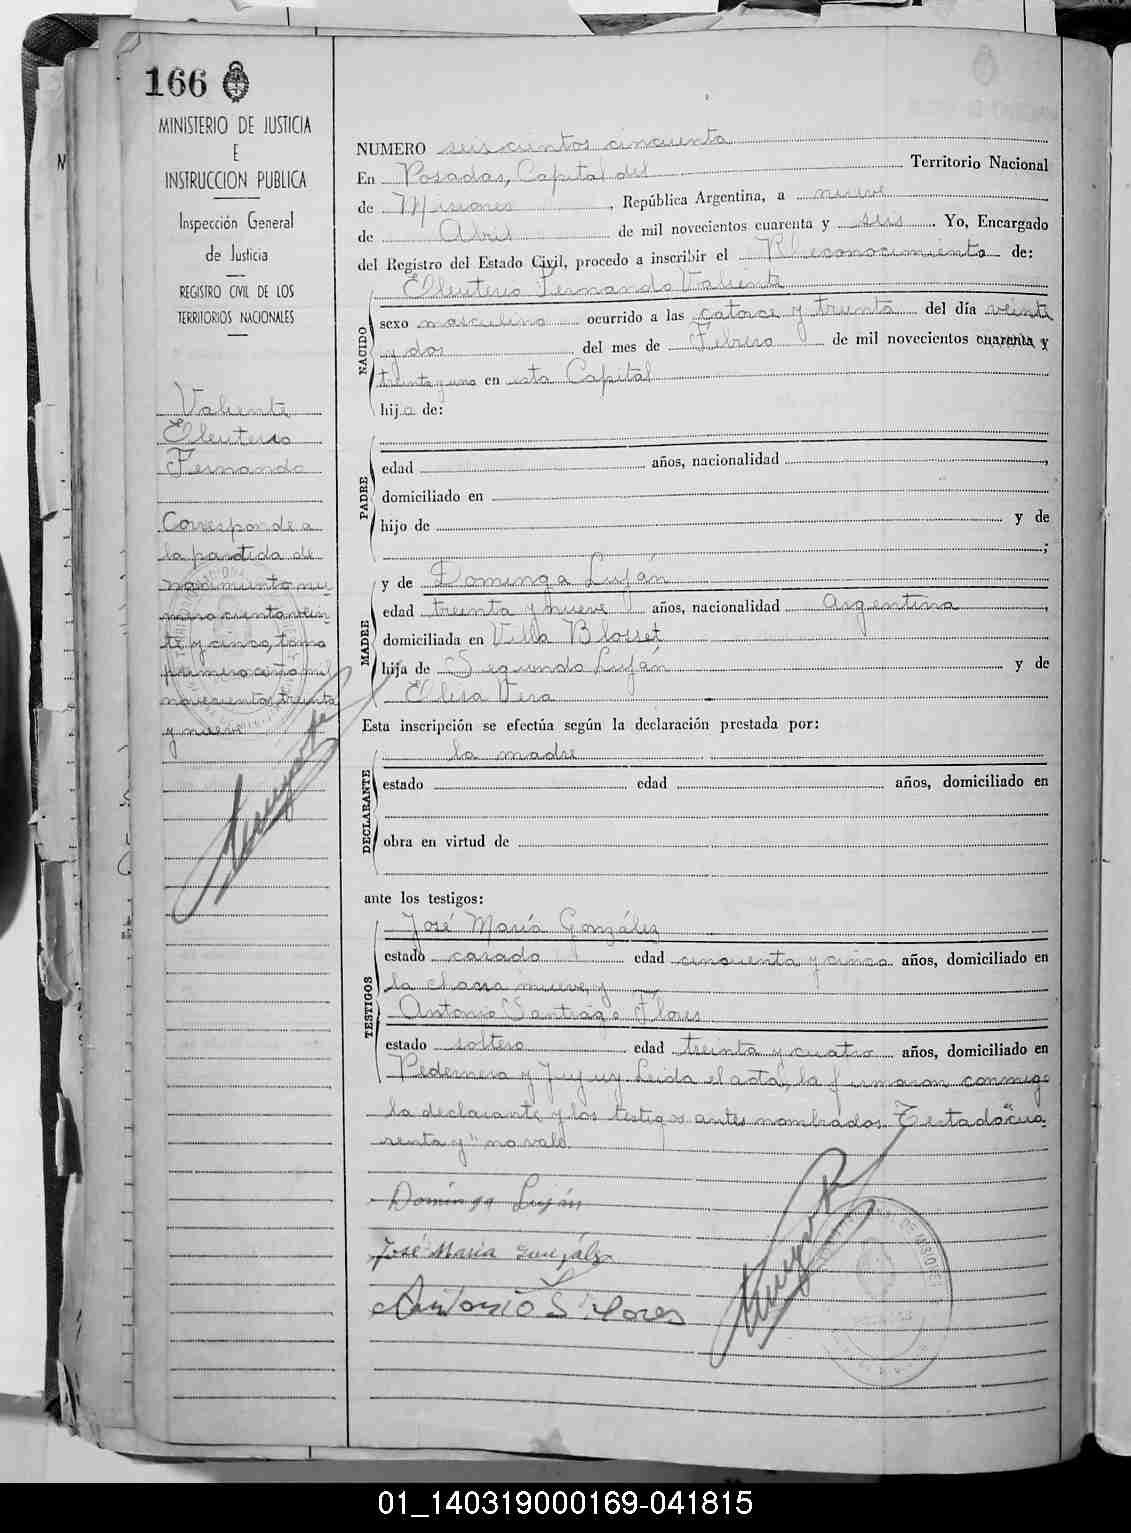 166
MINISTERIO DE JUSTICIA
E
INSTRUCCION PUBLICA
Inspección General
de Justicia
REGISTRO CIVIL DE LOS
TERRITORIOS NACIONALES
Valiente
Elleuterio
Fernando
Corresponde a
la partida de
nacimiento nu
mero ciento vein
te y cinco, tomo
primero año mil
novecientos treinta
y nueve
NUMERO seiscientos cincuenta
En Posadas, Capital del Territorio Nacional
de Misiones, República Argentina, a nueve
de Abril de mil novecientos cuarenta y seis. Yo, Encargado
del Registro del Estado Civil, procedo a inscribir el Reconocimiento de:
NACIDO
Elleuterio Fernando Valiente
sexo masculino ocurrido a las catorce y treinta del día veinte
y dos del mes de Febrero de mil novecientos cuarenta y
treinta y uno en esta Capital
hijo de:
PADRE
edad años, nacionalidad ,
domiciliado en
hijo de y de
;
MADRE
y de Dominga Luján
edad treinta y nueve años, nacionalidad Argentina,
domiciliada en Villa Blosset
hija de Segundo Luján y de
Elisa Vera
Esta inscripción se efectúa según la declaración prestada por:
DECLARANTE
la madre
estado edad años, domiciliado en
obra en virtud de
ante los testigos:
TESTIGOS
José María González
estado casado edad cincuenta y cinco años, domiciliado en
la chacra nueve, y
Antonio Santiago Flores
estado soltero edad treinta y cuatro años, domiciliado en
Pedernera y Jujuy Leida el acta, la firmaron conmigo
la declarante y los testigos antes nombrados. Testado "cua
renta y" no vale.
Dominga Luján
José Maria González
Antonio S. Flores
01_140319000169-041815